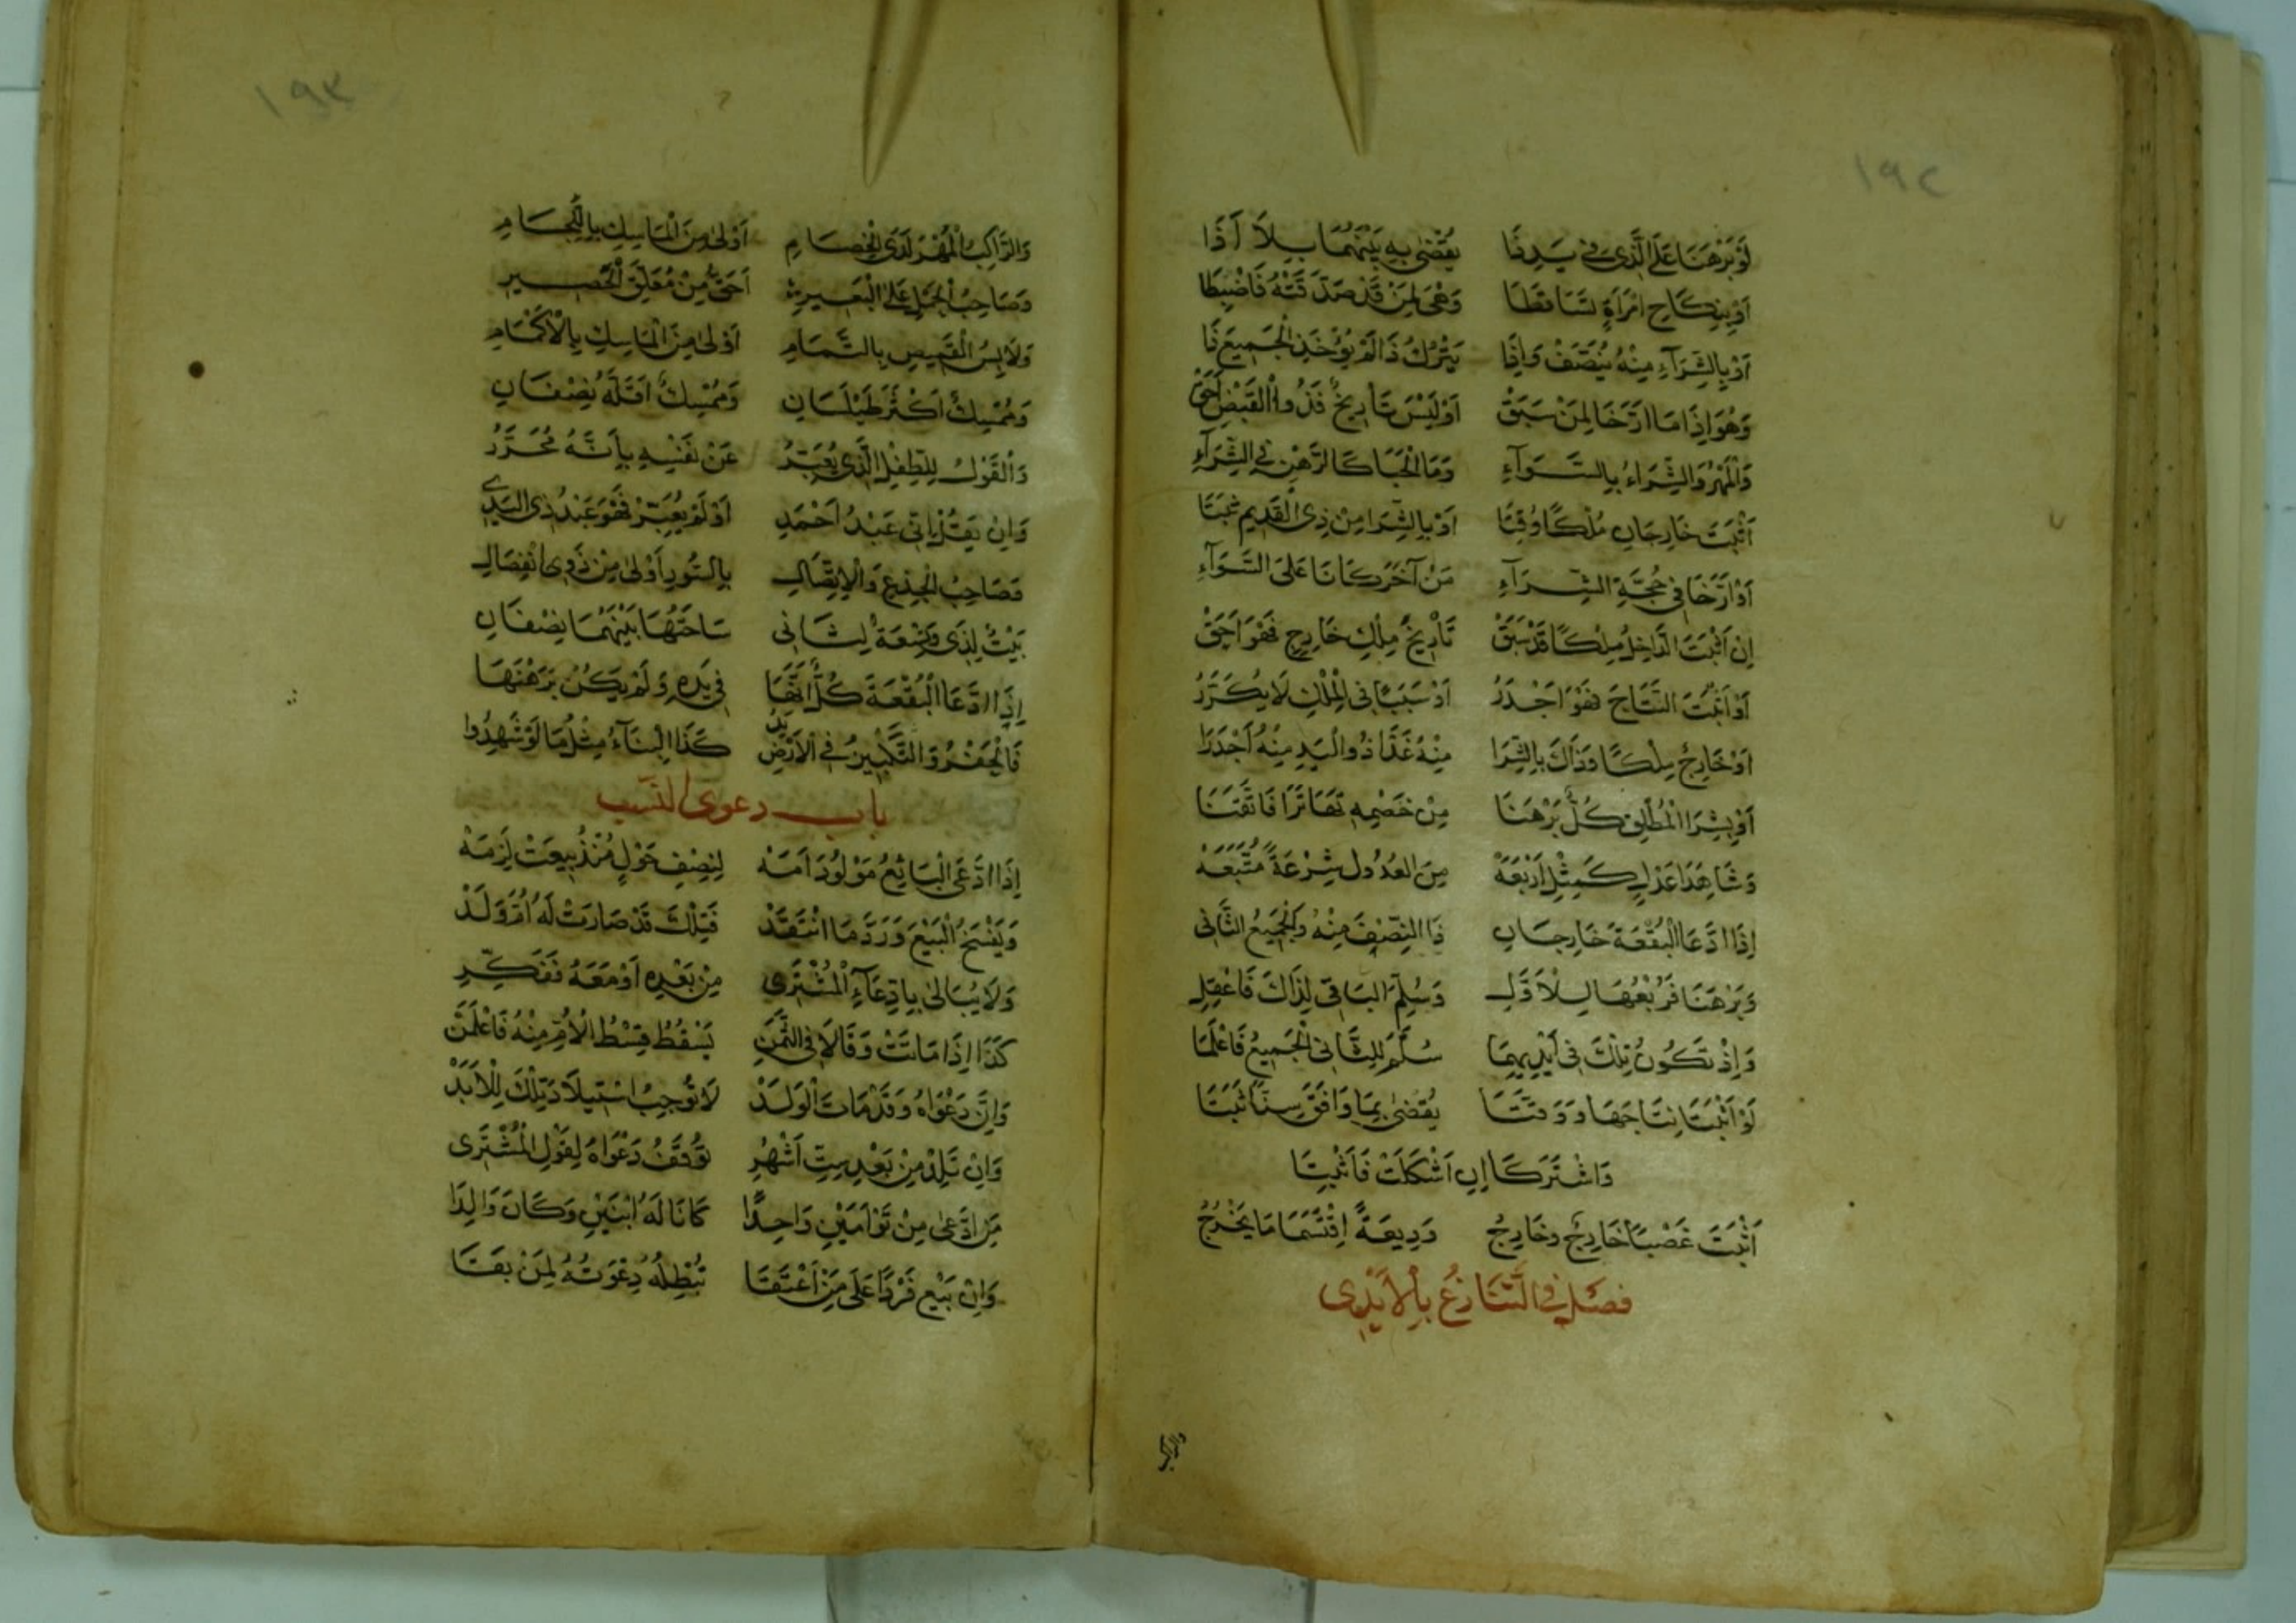 ١٩٢
لَوْ بَرْهَنَا عَلَى الَّذِي فِي يَدِ ذَا يُقْضَى بِهِ بَيْنَهُمَا بِلَا أَذَا
أَوْ بِنِكَاحِ امْرَأَةٍ تَسَاقَطَا وَهْيَ لِمَنْ قَدْ صَدَّقَتْهُ فَاضْبِطَا
أَوْ بِالشِّرَآءِ مِنْهُ نُصِّفَ وَإِذَا بِتَرْكِ ذَا لَمْ يُؤْخَذِ الْجَمِيعَ ذَا
وَهُوَ إِذَا مَا ارَّخَا لِمَنْ سَبَقْ أَوْ لَيْسَ تَأْرِيخٌ فَذُو الْقَبْضِ أَحَقْ
وَالْمَهْرُ وَالشِّرَاءُ بِالسَّوَآءِ وَمَا الْحَبَا كَالرَّهْنِ فِي الشِّرَآءِ
أَثْبَتَ خَارِجَانِ مُلْكًا وُقِّتَا أَوْ بِالشِّرَا مِنْ ذِي الْقَدِيمِ ثَبَتَا
أَوْ أَرَّخَا فِي حُجَّةِ الشِّرَآءِ مَنْ آخَرَ كَانَا عَلَى السَّوَآءِ
إِنْ أَثْبَتَ الدَّاخِلُ مِلْكًا قَدْ سَبَقْ تَأْرِيخَ مِلْكِ خَارِجٍ فَهْوَ أَحَقْ
أَوْ أَثْبَتَ النَّتَاجَ فَهْوَ أَجْدَرُ أَوْ سَبَبًا فِي الْمِلْكِ لَا يُكَرَّرُ
أَوْ خَارِجٌ مِلْكًا وَذَاكَ بِالشِّرَا مِنْهُ غَدَا ذُو الْيَدِ مِنْهُ أَجْدَرَا
أَوْ بِشِرَا الْمُطْلَقِ كُلٌّ بَرْهَنَا مِنْ خَصْمِهِ تَهَاتَرَا فَاتْقَنَا
وَشَاهِدَا عَدْلٍ كَمِثْلِ أَرْبَعَهْ مِنَ الْعُدُولِ شِرْعَةً مُتَّبَعَهْ
إِذَا ادَّعَا الْبُقْعَةَ خَارِجَانِ ذَا النِّصْفَ مِنْهُ وَالْجَمِيعَ الثَّانِي
وَبَرْهَنَا فَرُبْعُهَا لِلْأَوَّلِ وَسُلِّمَ الْبَاقِي لِذَاكَ فَاعْقِلِ
وَإِذْ تَكُونُ تِلْكَ فِي أَيْدِيهِمَا سُلِّمَ لِلثَّانِي الْجَمِيعُ فَاعْلَمَا
لَوْ أَثْبَتَا نِتَاجَهَا وَوَقَّتَا يُقْضَى بِمَا وَافَقَ سِنًّا ثَبَتَا
وَاشْتَرَكَا إِنْ أَشْكَلَتْ فَأَثْبِتَا
أَثْبَتَ غَصْبًا خَارِجٌ وَخَارِجُ وَدِيعَةً اِقْتَسَمَا مَا يَخْرُجُ
فَصْلٌ فِي التَّنَازُعِ بِالْأَيْدِي
١٩٣
وَالرَّاكِبُ الْمُهْرَ لَدَى الْخِصَامِ أَوْلَى مِنَ الْمَاسِكِ بِاللِّجَامِ
وَصَاحِبُ الْحِمْلِ عَلَى الْبَعِيرِ أَحَقُّ مِنْ مُعَلِّقِ الْحَصِيرِ
وَلَابِسُ الْقَمِيصِ بِالتَّمَامِ أَوْلَى مِنَ الْمَاسِكِ بِالْأَكْمَامِ
وَمُمْسِكٌ أَكْثَرَ طَيْلَسَانِ وَمُمْسِكٌ أَقَلَّهُ نِصْفَانِ
وَالْقَوْلُ لِلطِّفْلِ الَّذِي يُعَبِّرُ عَنْ نَفْسِهِ بِأَنَّهُ مُحَرَّرُ
وَإِنْ يَقُلْ إِنِّي عَبْدُ أَحْمَدِ أَوْ لَمْ يُعَبِّرْ فَهْوَ عَبْدُ ذِي الْيَدِ
وَصَاحِبُ الْجِذْعِ وَالِاتِّصَالِ بِالسُّورِ أَوْلَى مِنْ ذَوِي انْفِصَالِ
بَيْتٌ لِذِي وَتِسْعَةٌ لِثَانِي سَاحَتُهَا بَيْنَهُمَا نِصْفَانِ
إِذَا ادَّعَا الْبُقْعَةَ كُلٌّ أَنَّهَا فِي يَدِهِ وَلَمْ يَكُنْ بَرْهَنَهَا
فَالْحَفْرُ وَالتَّلْبِينُ فِي الْأَرْضِ يَدُ كَذَا الْبِنَآءُ مِثْلُ مَا لَوْ شَهِدُوا
باب دعوى النسب
إِذَا ادَّعَى الْبَائِعُ مَوْلُودَ أَمَهْ لِنِصْفِ حَوْلٍ مُنْذُ بِيعَتْ لَزِمَهْ
وَيُفْسَخُ الْبَيْعُ وَرَدَّ مَا انْتَقَدْ فَتِلْكَ قَدْ صَارَتْ لَهُ أُمَّ وَلَدْ
وَلَا يُبَالَى بِادِّعَآءِ الْمُشْتَرِي مِنْ بَعْدِهِ أَوْ مَعَهُ فَفَكِّرِ
كَذَا إِذَا مَاتَتْ وَقَالَا فِي الثَّمَنِ يَسْقُطُ قِسْطُ الْأُمِّ مِنْهُ فَاعْلَمَنْ
وَإِنَّ دَعْوَاهُ وَقَدْ مَاتَ الْوَلَدْ لَا تُوجِبُ اسْتِيلَادَ تِلْكَ لِلْأَبَدْ
وَإِنْ تَلِدْ مِنْ بَعْدِ سِتِّ أَشْهُرِ تُوقَفُ دَعْوَاهُ لِقَوْلِ الْمُشْتَرِي
مَنِ ادَّعَى مِنْ تَوْأَمَيْنِ وَاحِدًا كَانَا لَهُ ابْنَيْنِ وَكَانَ وَالِدَا
وَإِنْ بَيْعٌ فَرْدًا عَلَى مَنْ أَعْتَقَا تُبْطِلُهُ دِعْوَتُهُ لِمَنْ بَقَا